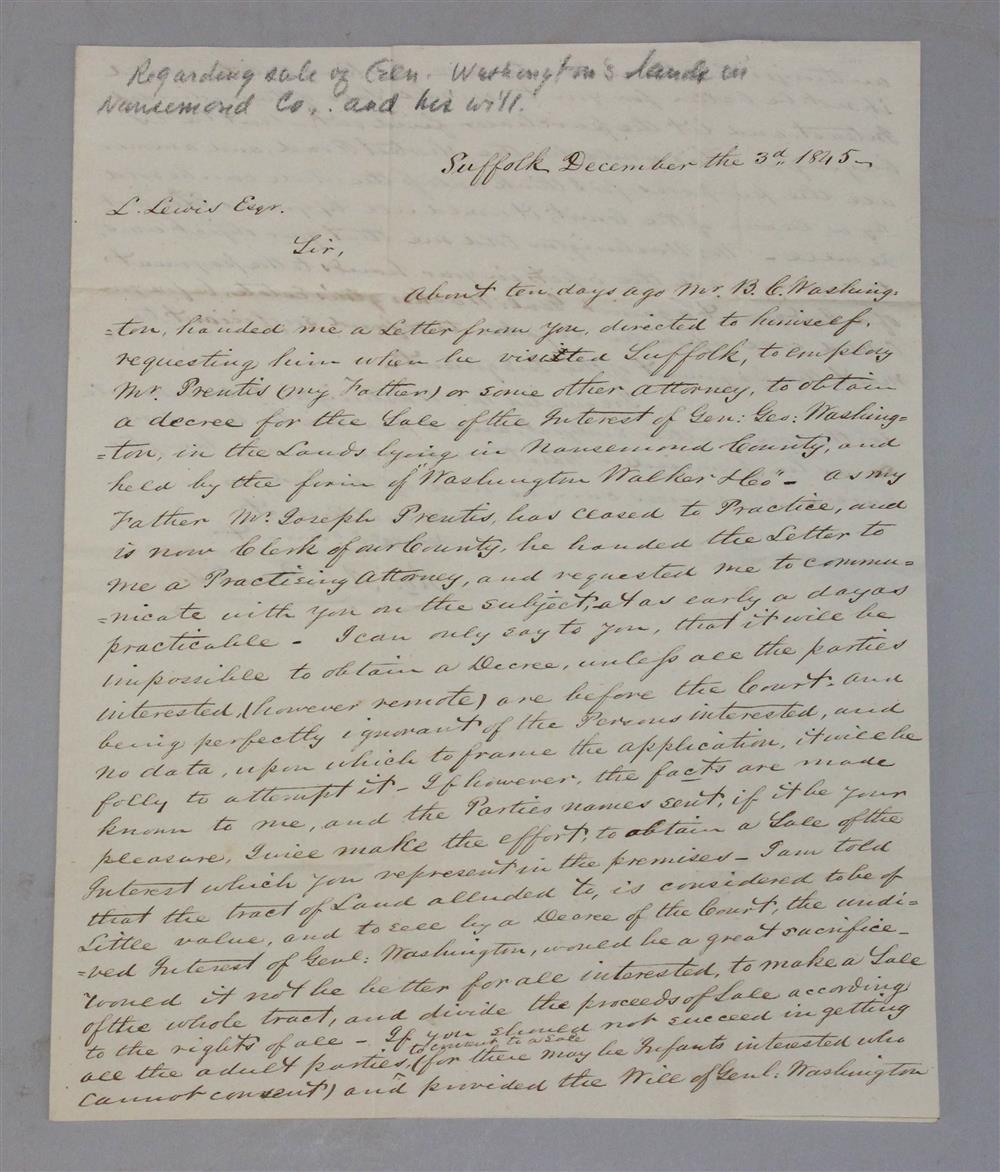 Regarding sale of Gen. Washington's lands in
Nansemond Co., and his will.
Suffolk December the 3d. 1845–
L. Lewis Esqr.
Sir,
About ten days ago Mr. B. C. Washing:
=ton, handed me a Letter from you, directed to himself,
requesting him when he visited Suffolk, to employ
Mr. Prentis (my Father) or some other attorney, to obtain
a decree for the Sale of the Interest of Gen: Geo: Washing=
=ton, in the Lands lying in Nansemond County, and
held by the firm of "Washington Walker & Co" – as my
Father Mr. Joseph Prentis, has ceased to Practice, and
is now Clerk of our County, he handed the Letter to
me a Practising Attorney, and requested me to commu=
=nicate with you on the subject, at as early a day as
practicable – I can only say to you, that it will be
impossible to obtain a Decree, unless all the parties
interested, (however remote) are before the Court, and
being perfectly ignorant of the Persons interested, and
no data, upon which to frame the application, it will be
folly to attempt it – If however, the facts are made
known to me, and the Parties names sent, if it be your
pleasure, I will make the effort, to obtain a Sale of the
Interest which you represent in the premises – I am told
that the tract of Land alluded to, is considered to be of
Little value, and to sell by a Decree of the Court, the undi=
=ved Interest of Genl: Washington, would be a great sacrifice –
would it not be better for all interested, to make a Sale
of the whole tract, and divide the proceeds of Sale according
to the rights of all – If you should not succeed in getting
to consent to a Sale
all the adult parties, (for there may be Infants interested who
cannot consent) and provided the Will of Genl: Washington